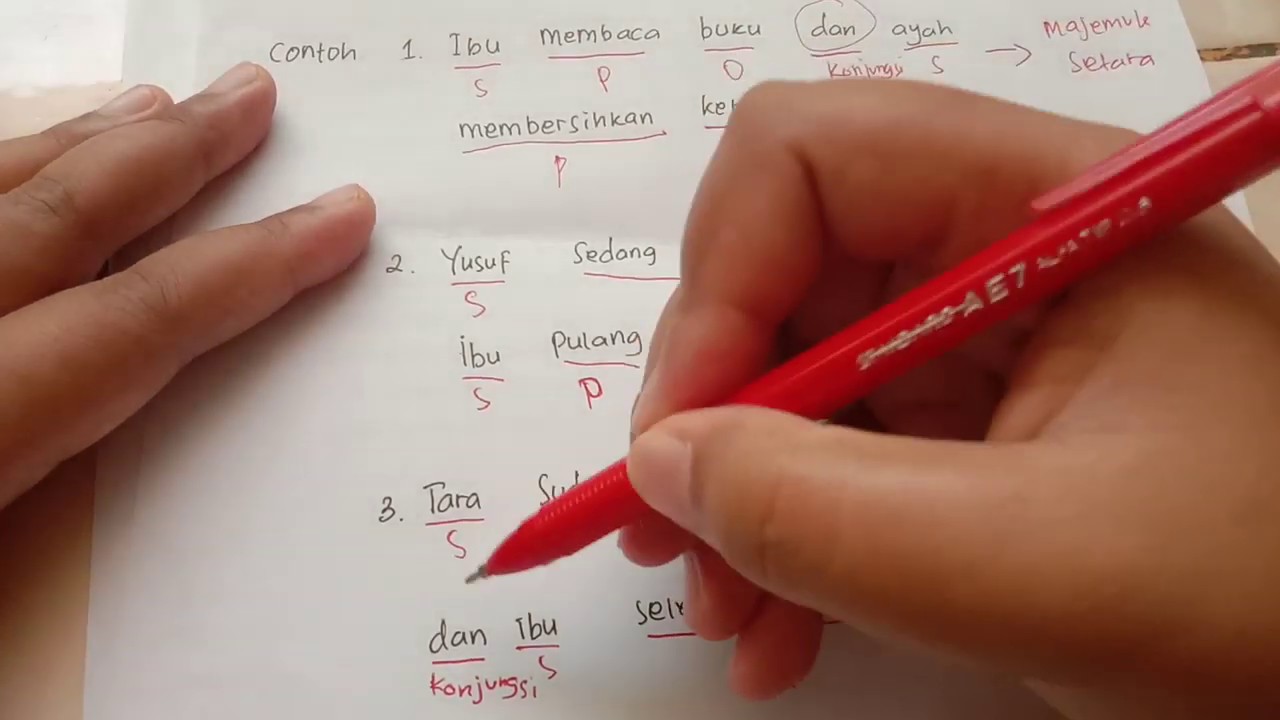 Contoh 1. Ibu membaca buku dan ayah → Majemuk
S P O Konjungsi S Setara
membersihkan
P
2. Yusuf Sedang
S
ibu Pulang
S P
3. Tara
S
dan ibu
Konjungsi S